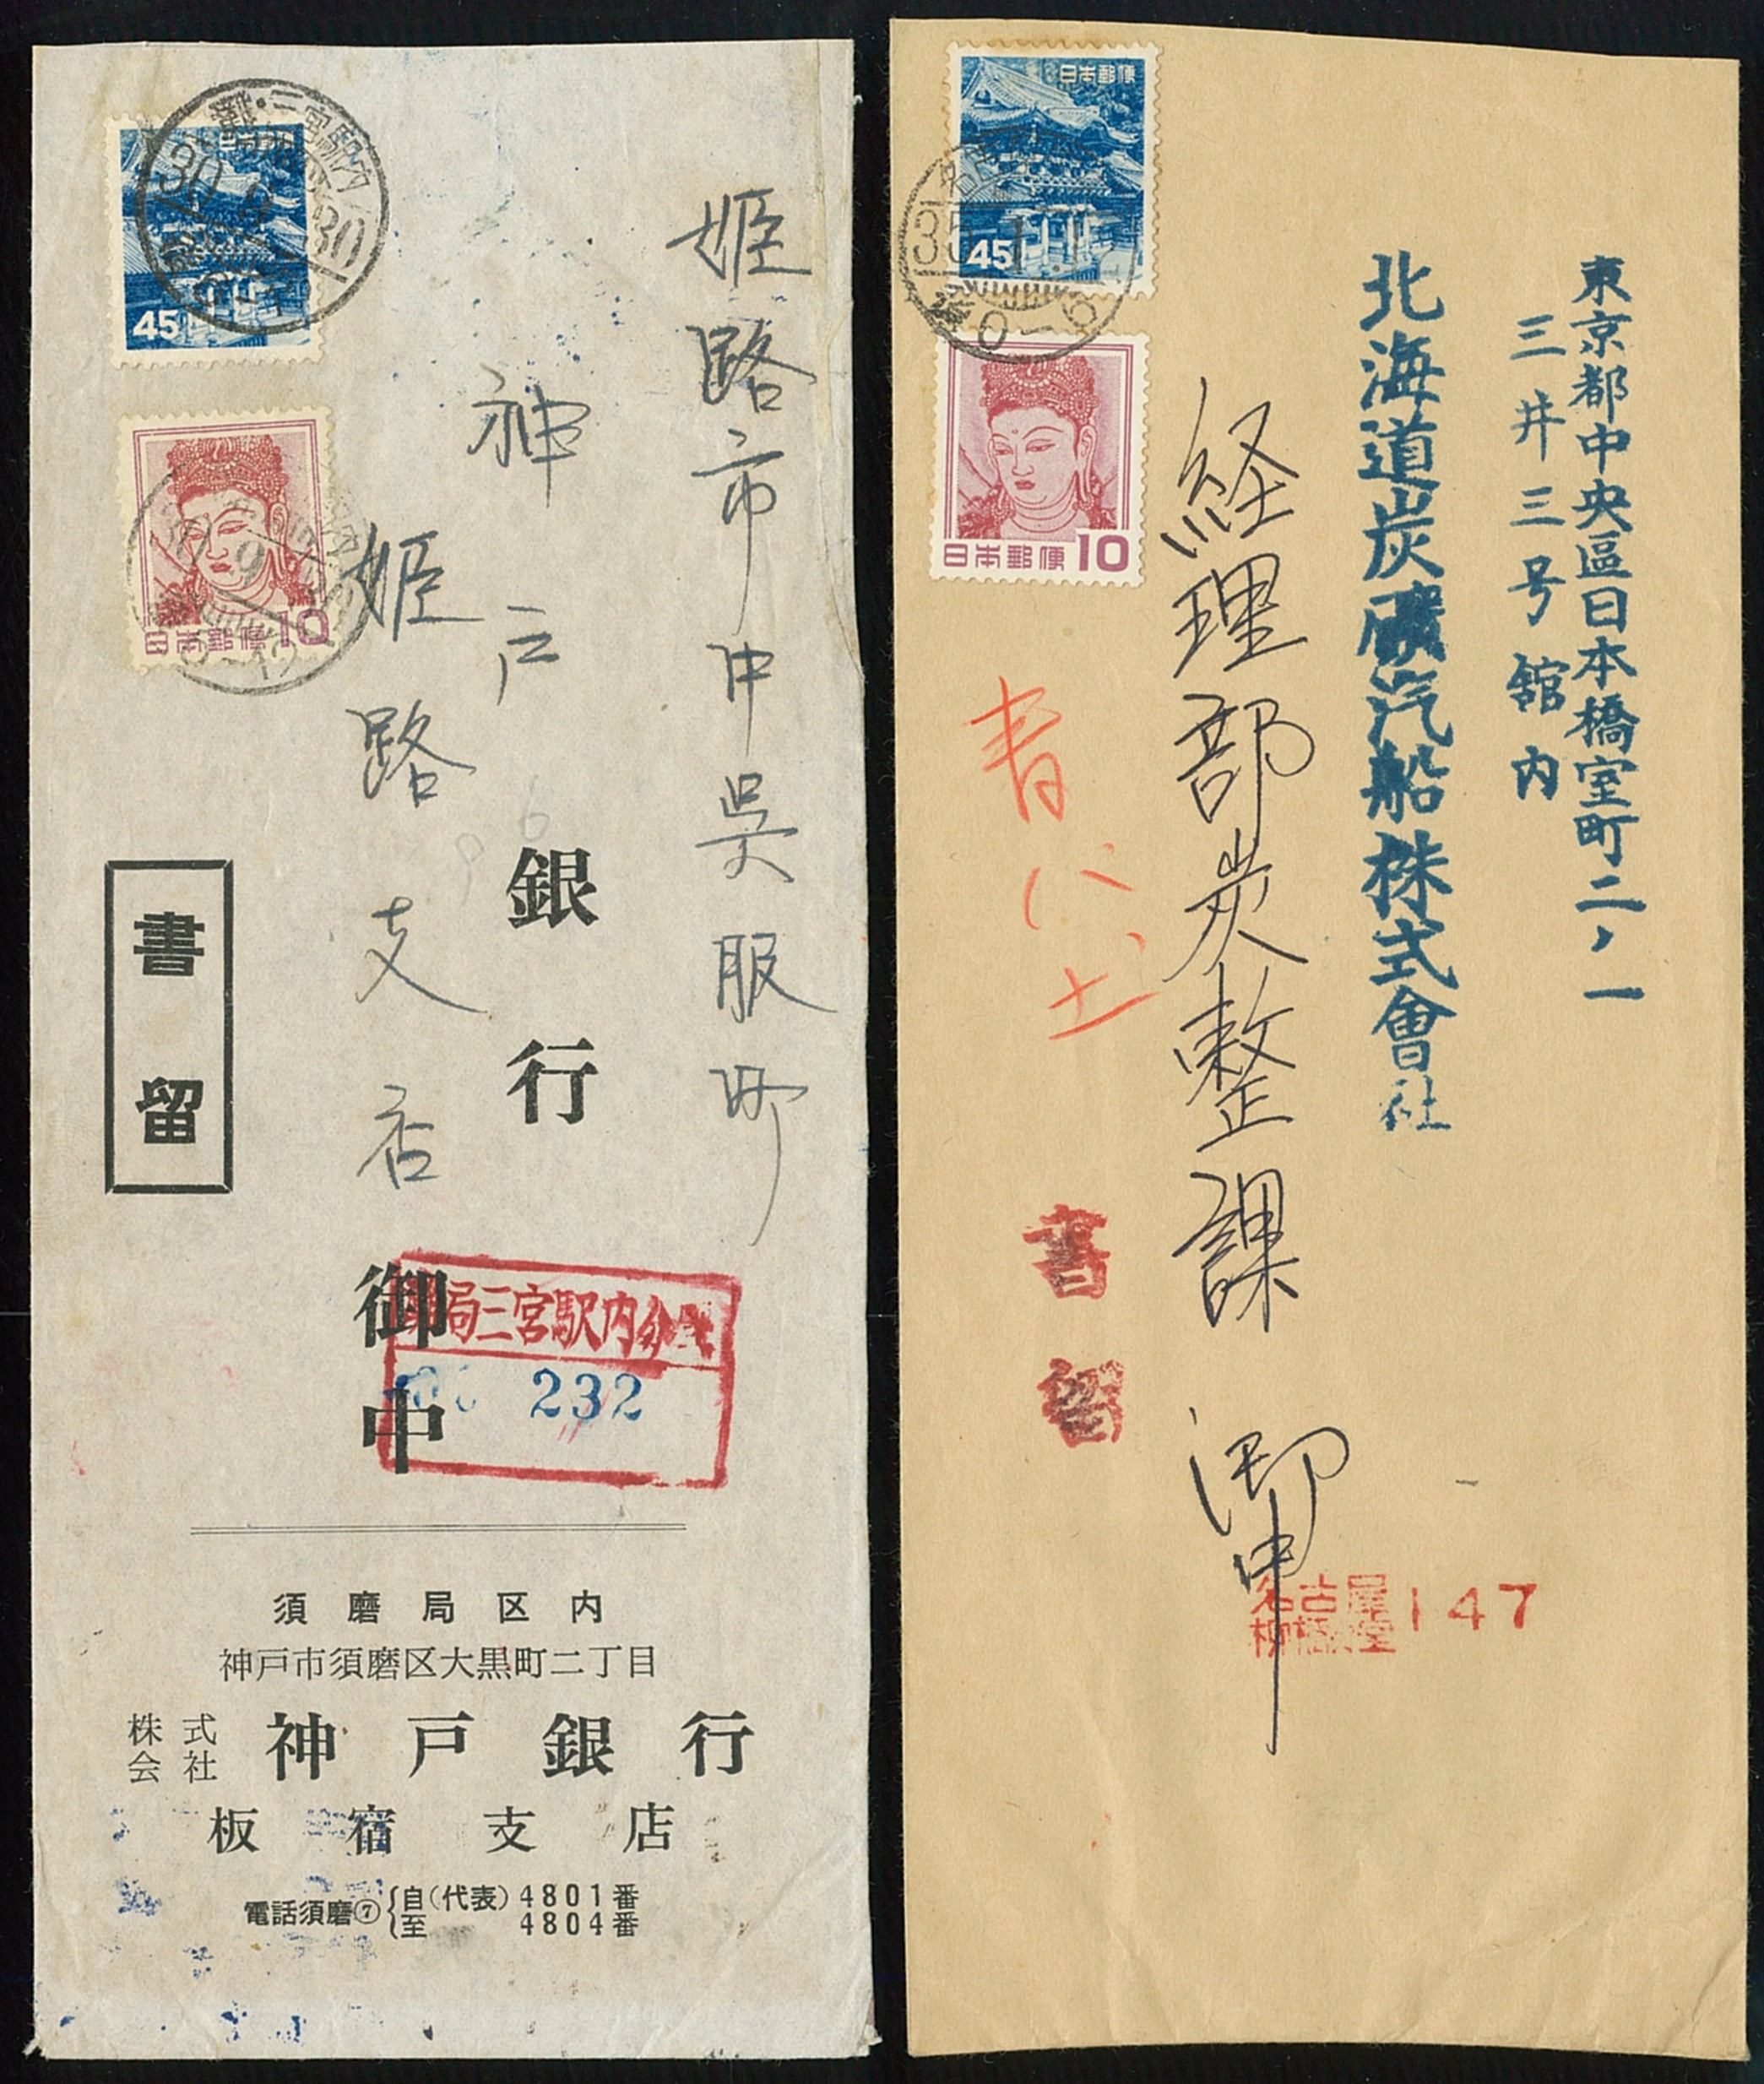 姫路市中呉服町
神戸銀行
姫路支店
御中
書留
45
日本郵便 10
局三宮駅内分
232
須磨局区内
神戸市須磨区大黒町二丁目
株式会社 神戸銀行
板宿支店
電話須磨⑦ 自(代表)4801番
至 4804番
東京都中央區日本橋室町二ノ一
三井三号館内
北海道炭礦汽船株式會社
経理部炭整課 御中
日本郵便
45
35.1.1
后0-6
日本郵便 10
書留
名古屋 147